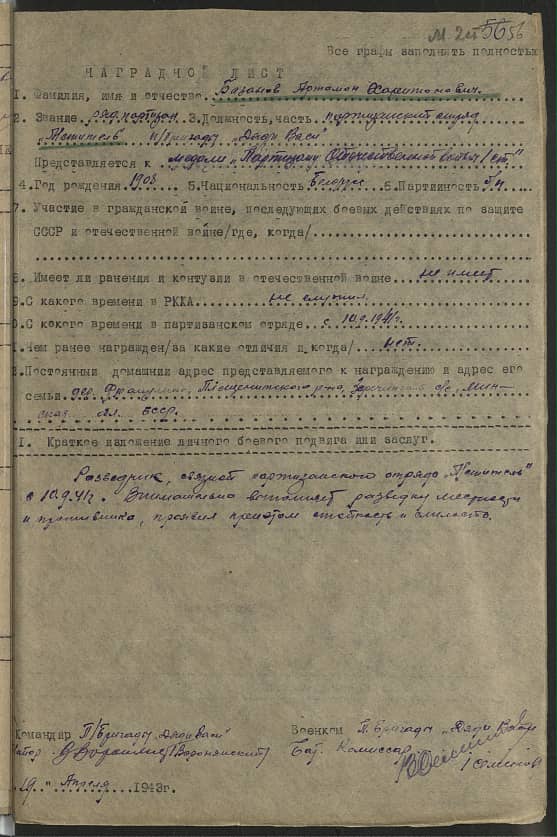 М 2ст 5656
Все графы заполнять полностью
НАГРАДНОЙ ЛИСТ
1. Фамилия, имя и отчество Базанов Харитонович
2. Звание ряд. партизан 3. Должность, часть партизанский отряд
„Мститель" п/бригады „Дяди Васи"
Представляется к медали „Партизану Отечественной войны I ст"
4. Год рождения 1903 5. Национальность Белорус 6. Партийность б/п
7. Участие в гражданской войне, последующих боевых действиях по защите
СССР и отечественной войне/где, когда/
8. Имеет ли ранения и контузии в отечественной войне не имеет
9. С какого времени в РККА не служил
0. С какого времени в партизанском отряде с 10.9.1941г.
1. Чем ранее награжден/за какие отличия и когда/ нет.
2. Постоянный домашний адрес представляемого к награждению и адрес его
семьи дер. р-на, с/с, Мин-
ская обл. БССР.
I. Краткое изложение личного боевого подвига или заслуг.
Разведчик, связной партизанского отряда „Мститель"
с 10.9.41г. разведку местности
и противника, проявил при этом и смелость.
Командир П/Бригады „Дяди Васи" Военком П. Бригады „Дяди Васи"
майор (Воронянский) Бат. Комиссар
"19" Апреля 1943г.